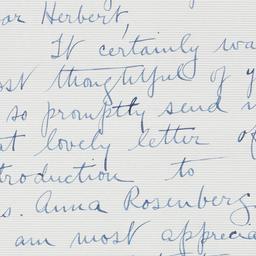 ar Herbert,
It certainly wa
ost thoughtful of y
so promptly send m
at lovely letter of
troduction to
s. Anna Rosenberg.
am most apprecia